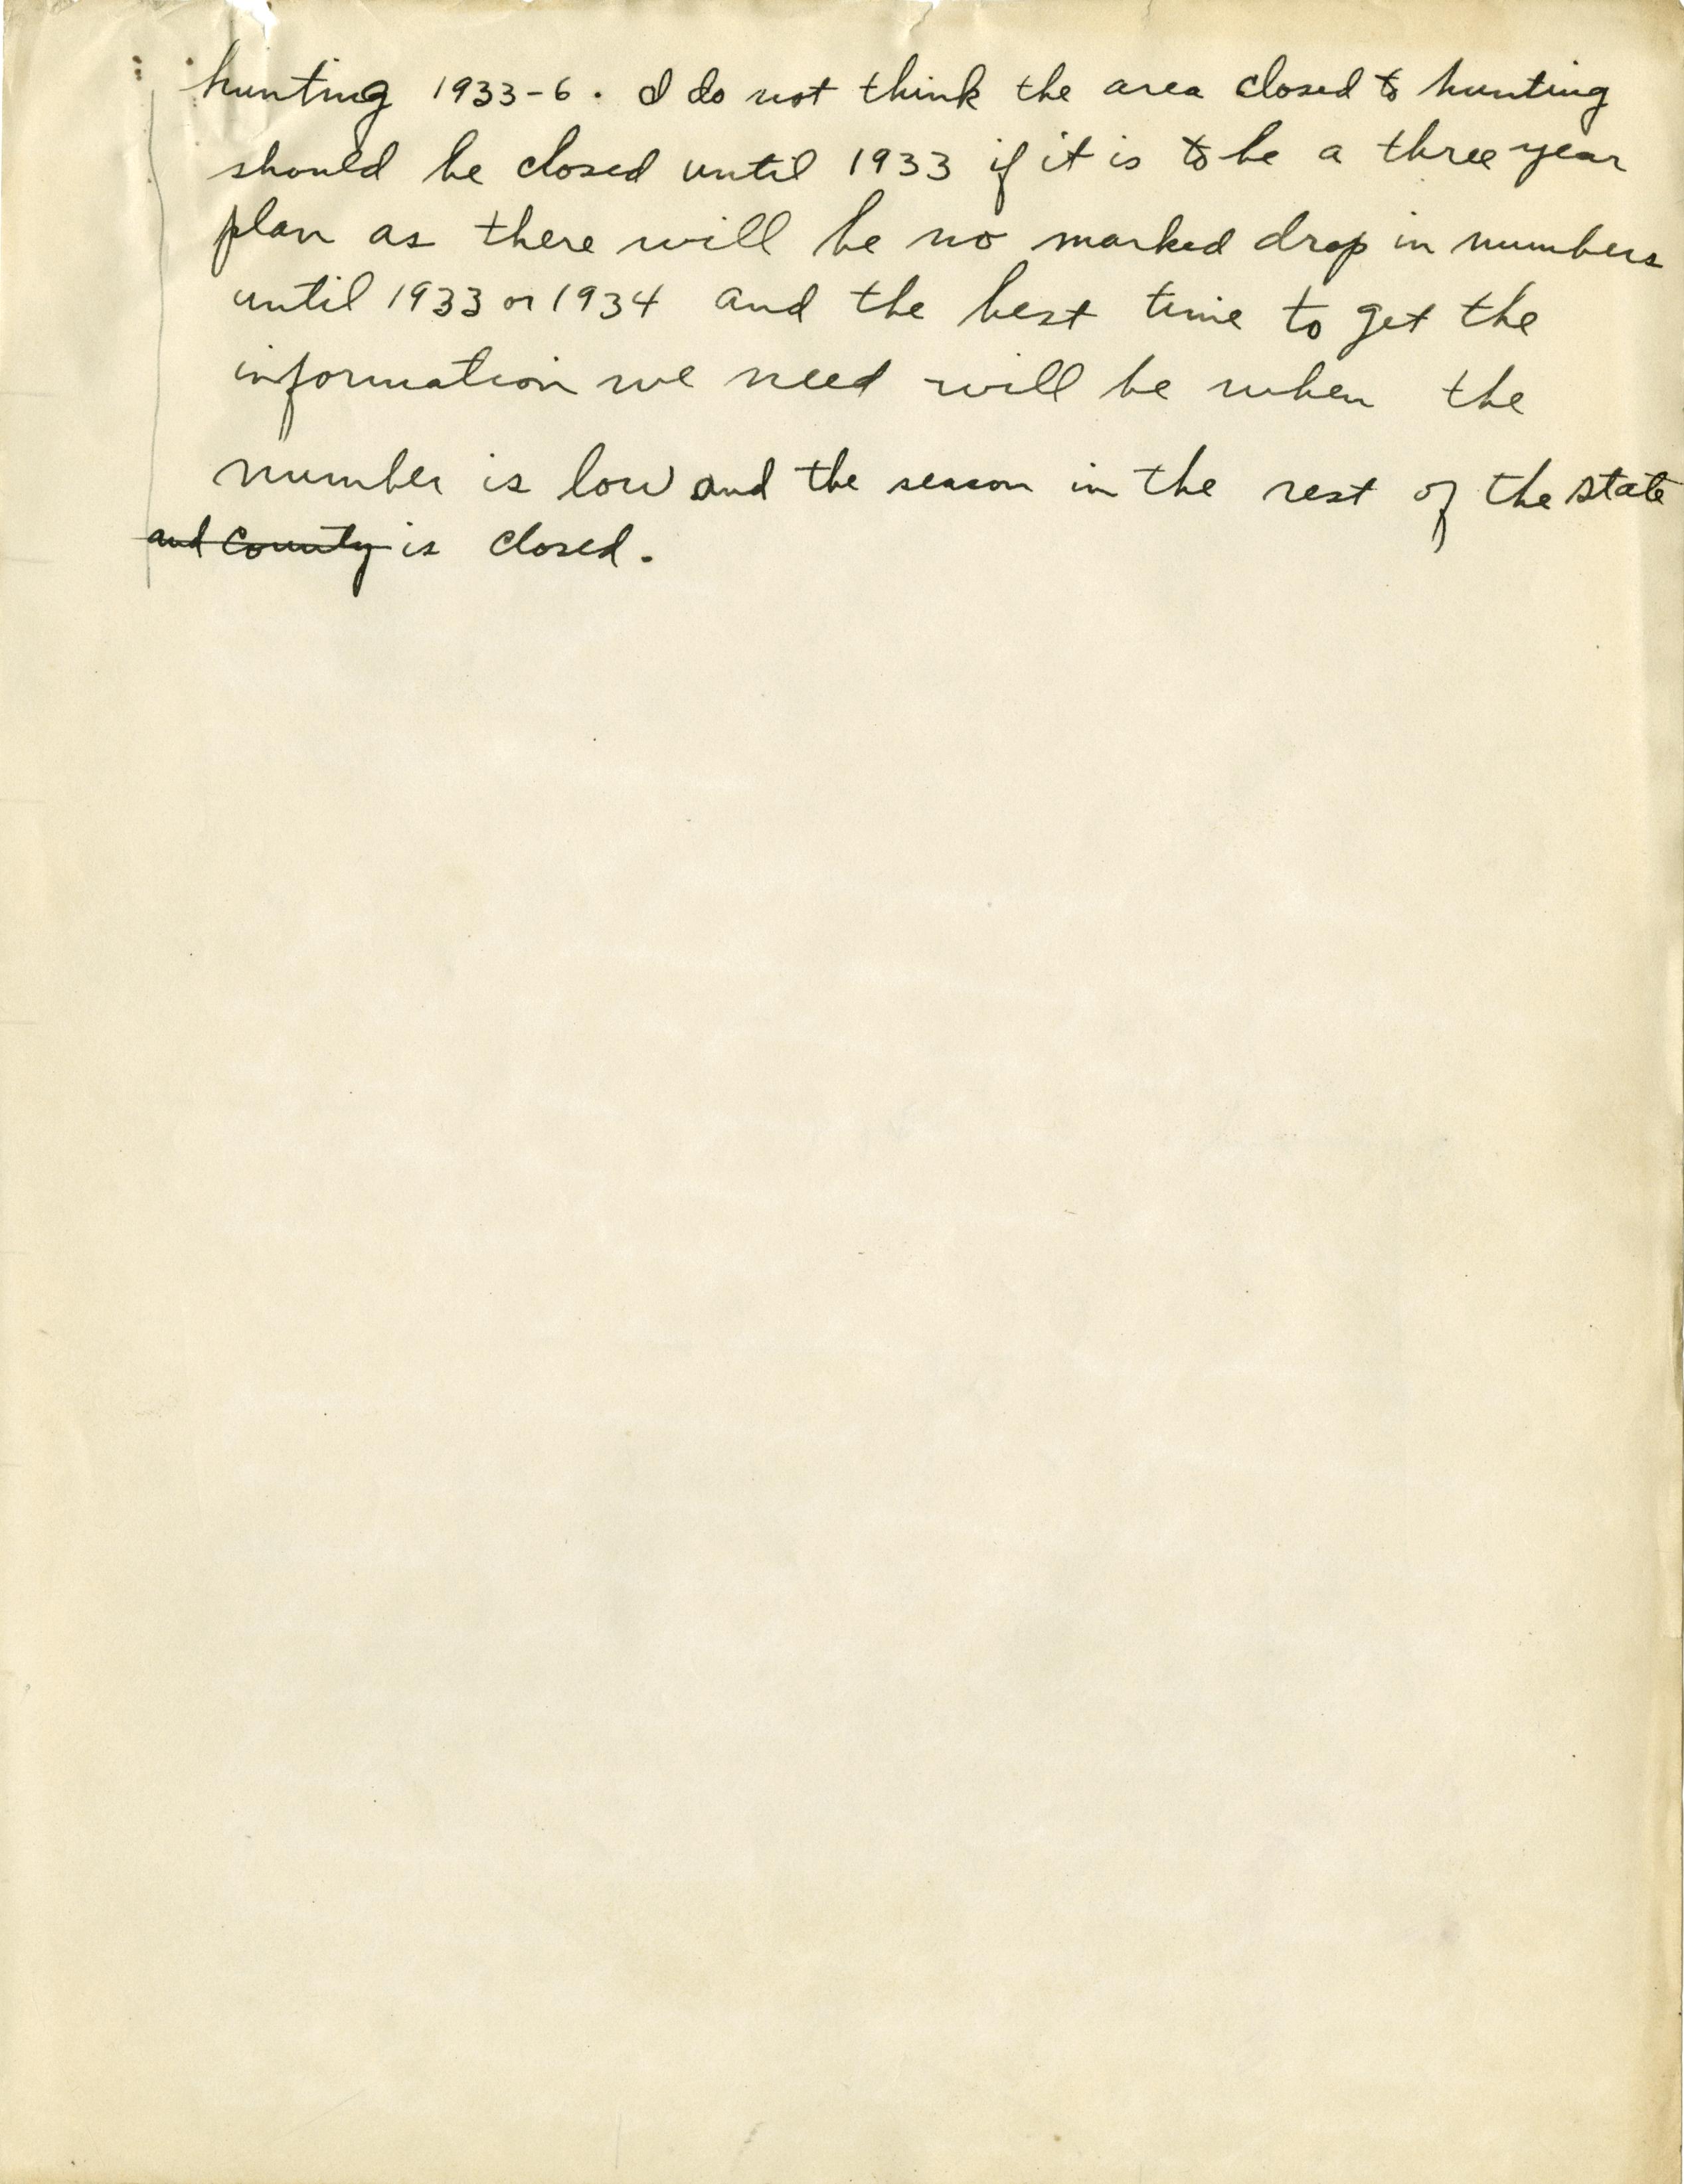 hunting 1933-6. I do not think the area closed to hunting
should be closed until 1933 if it is to be a three year
plan as there will be no marked drop in numbers
until 1933 or 1934 and the best time to get the
information we need will be when the
number is low and the season in the rest of the state
and County is closed.